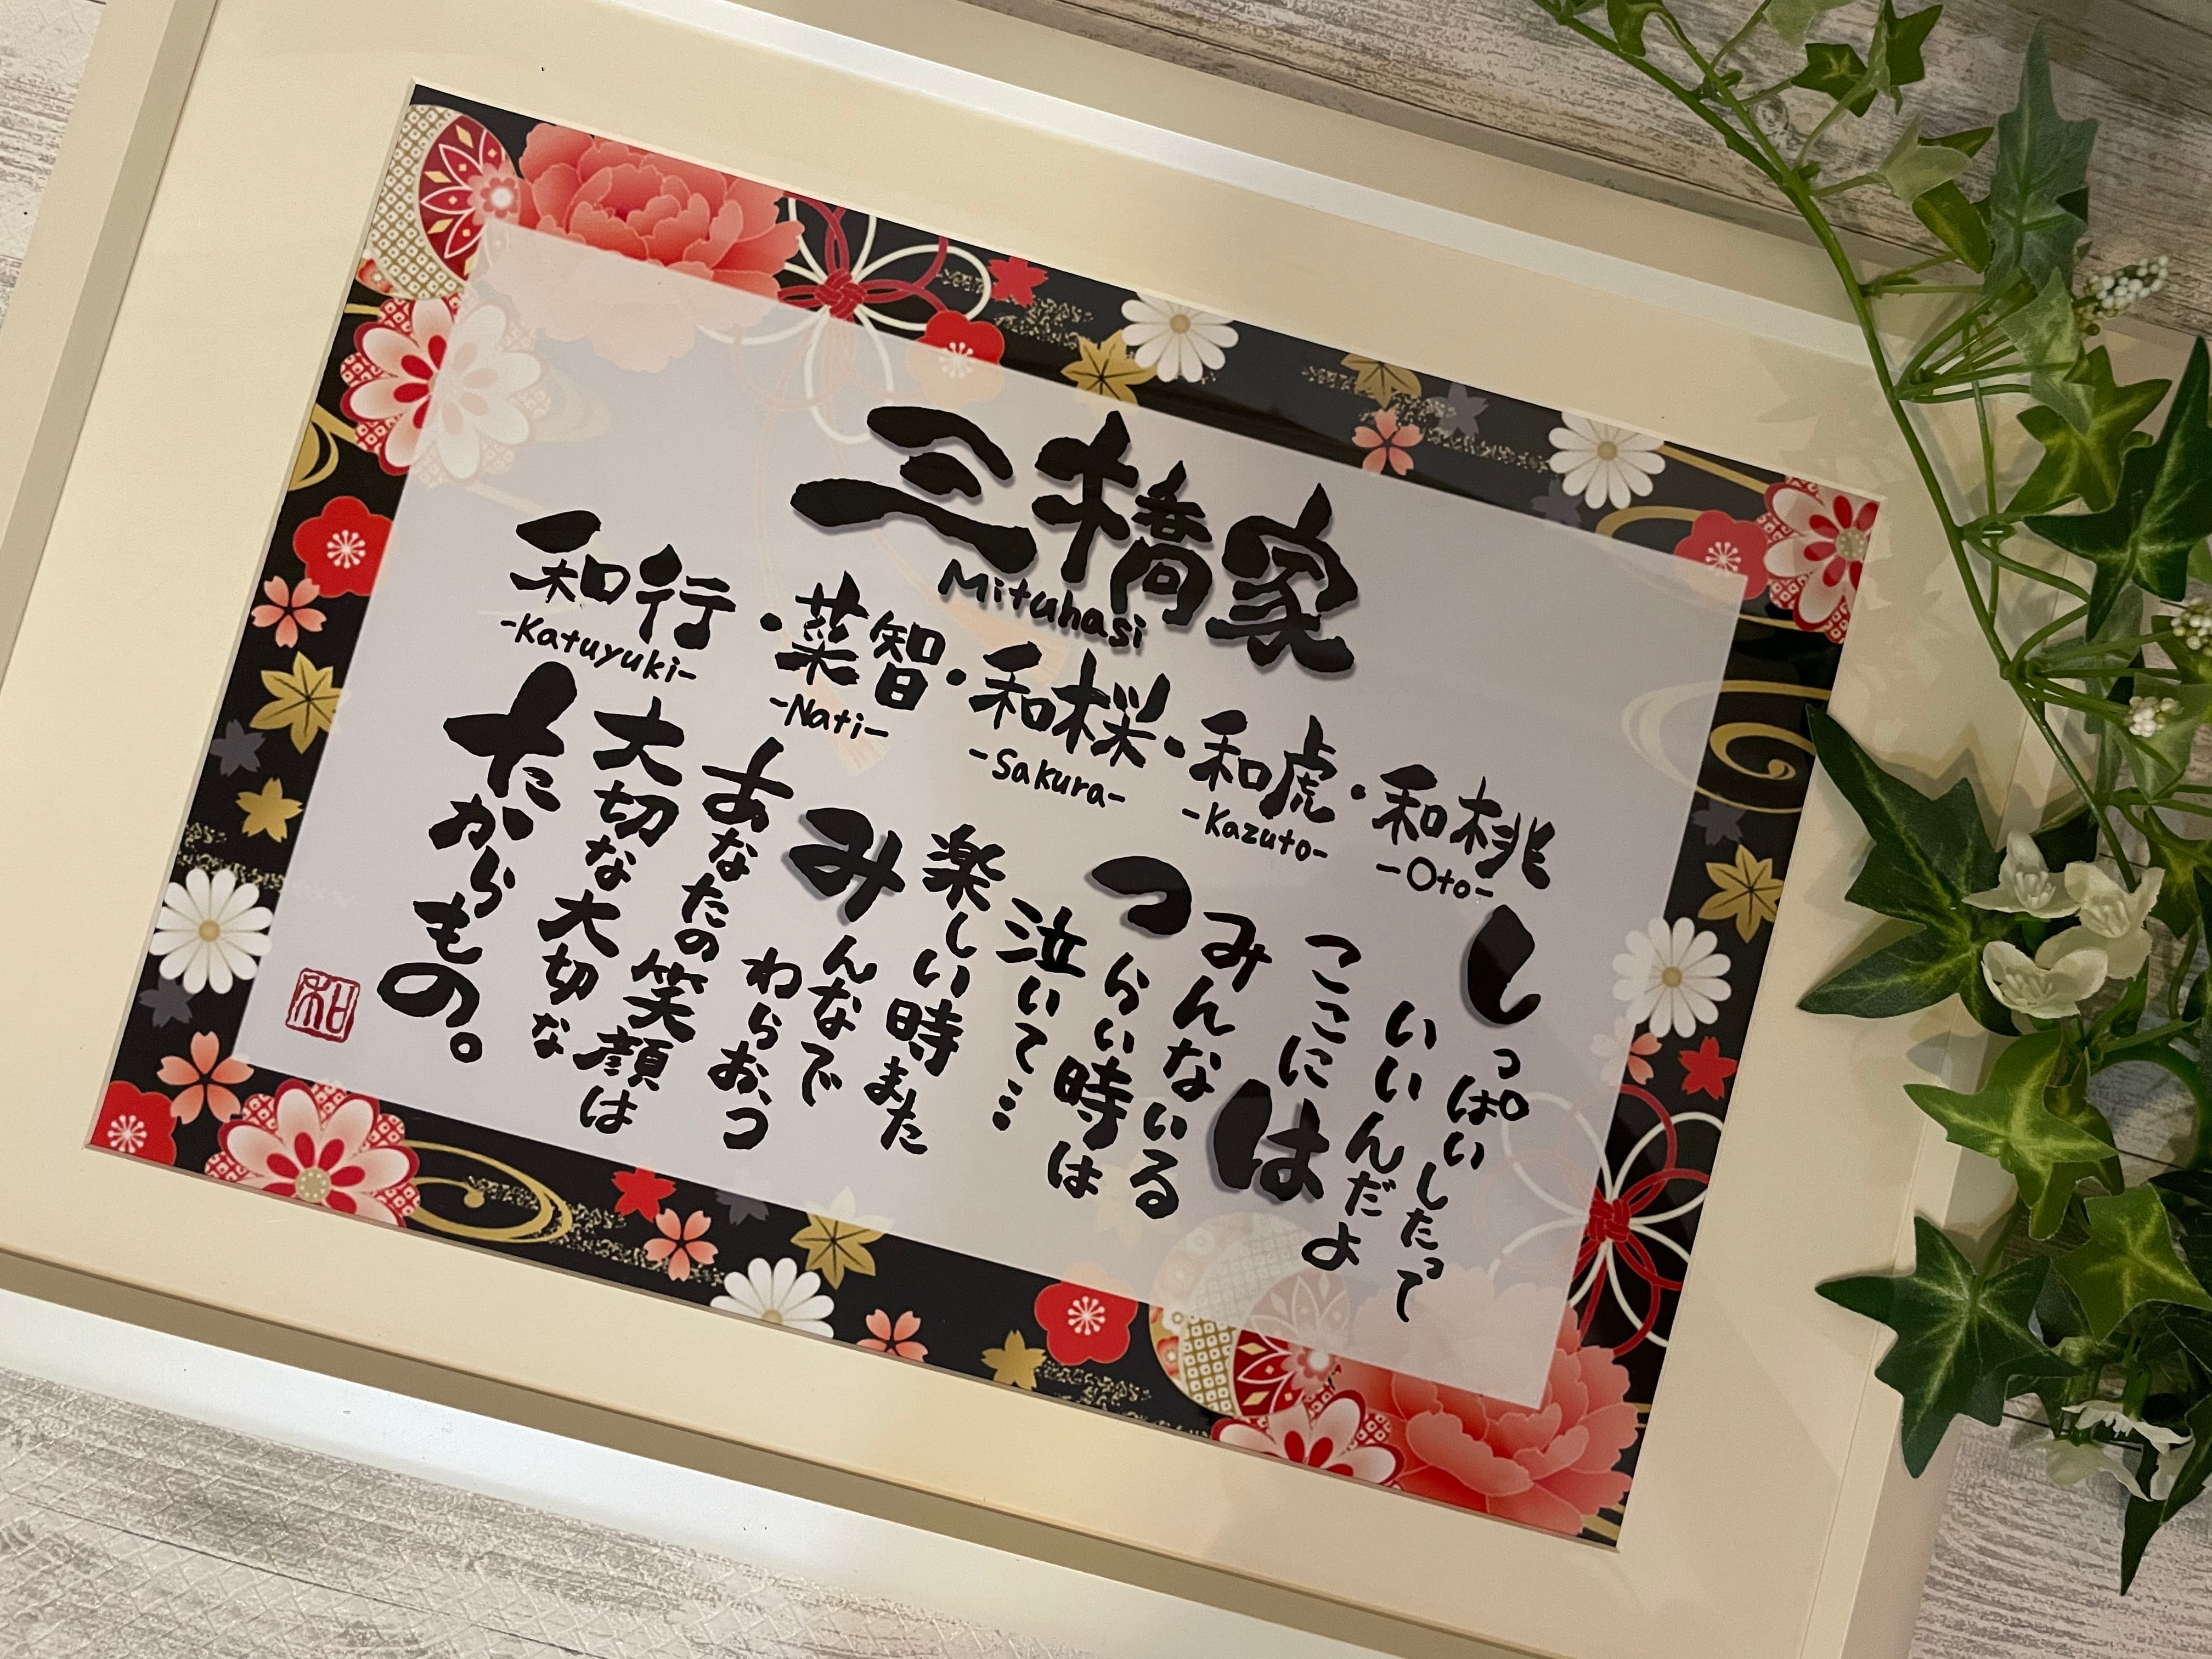 三橋家
Mituhasi
和行・菜智・和桜・和虎・和桃
-Katuyuki- -Nati- -Sakura- -Kazuto- -Oto-
しっぱいしたって
いいんだよ
ここには
みんないる
つらい時は
泣いて…
楽しい時また
みんなで
わらおっ
あなたの笑顔は
大切な大切な
たからもの。
和